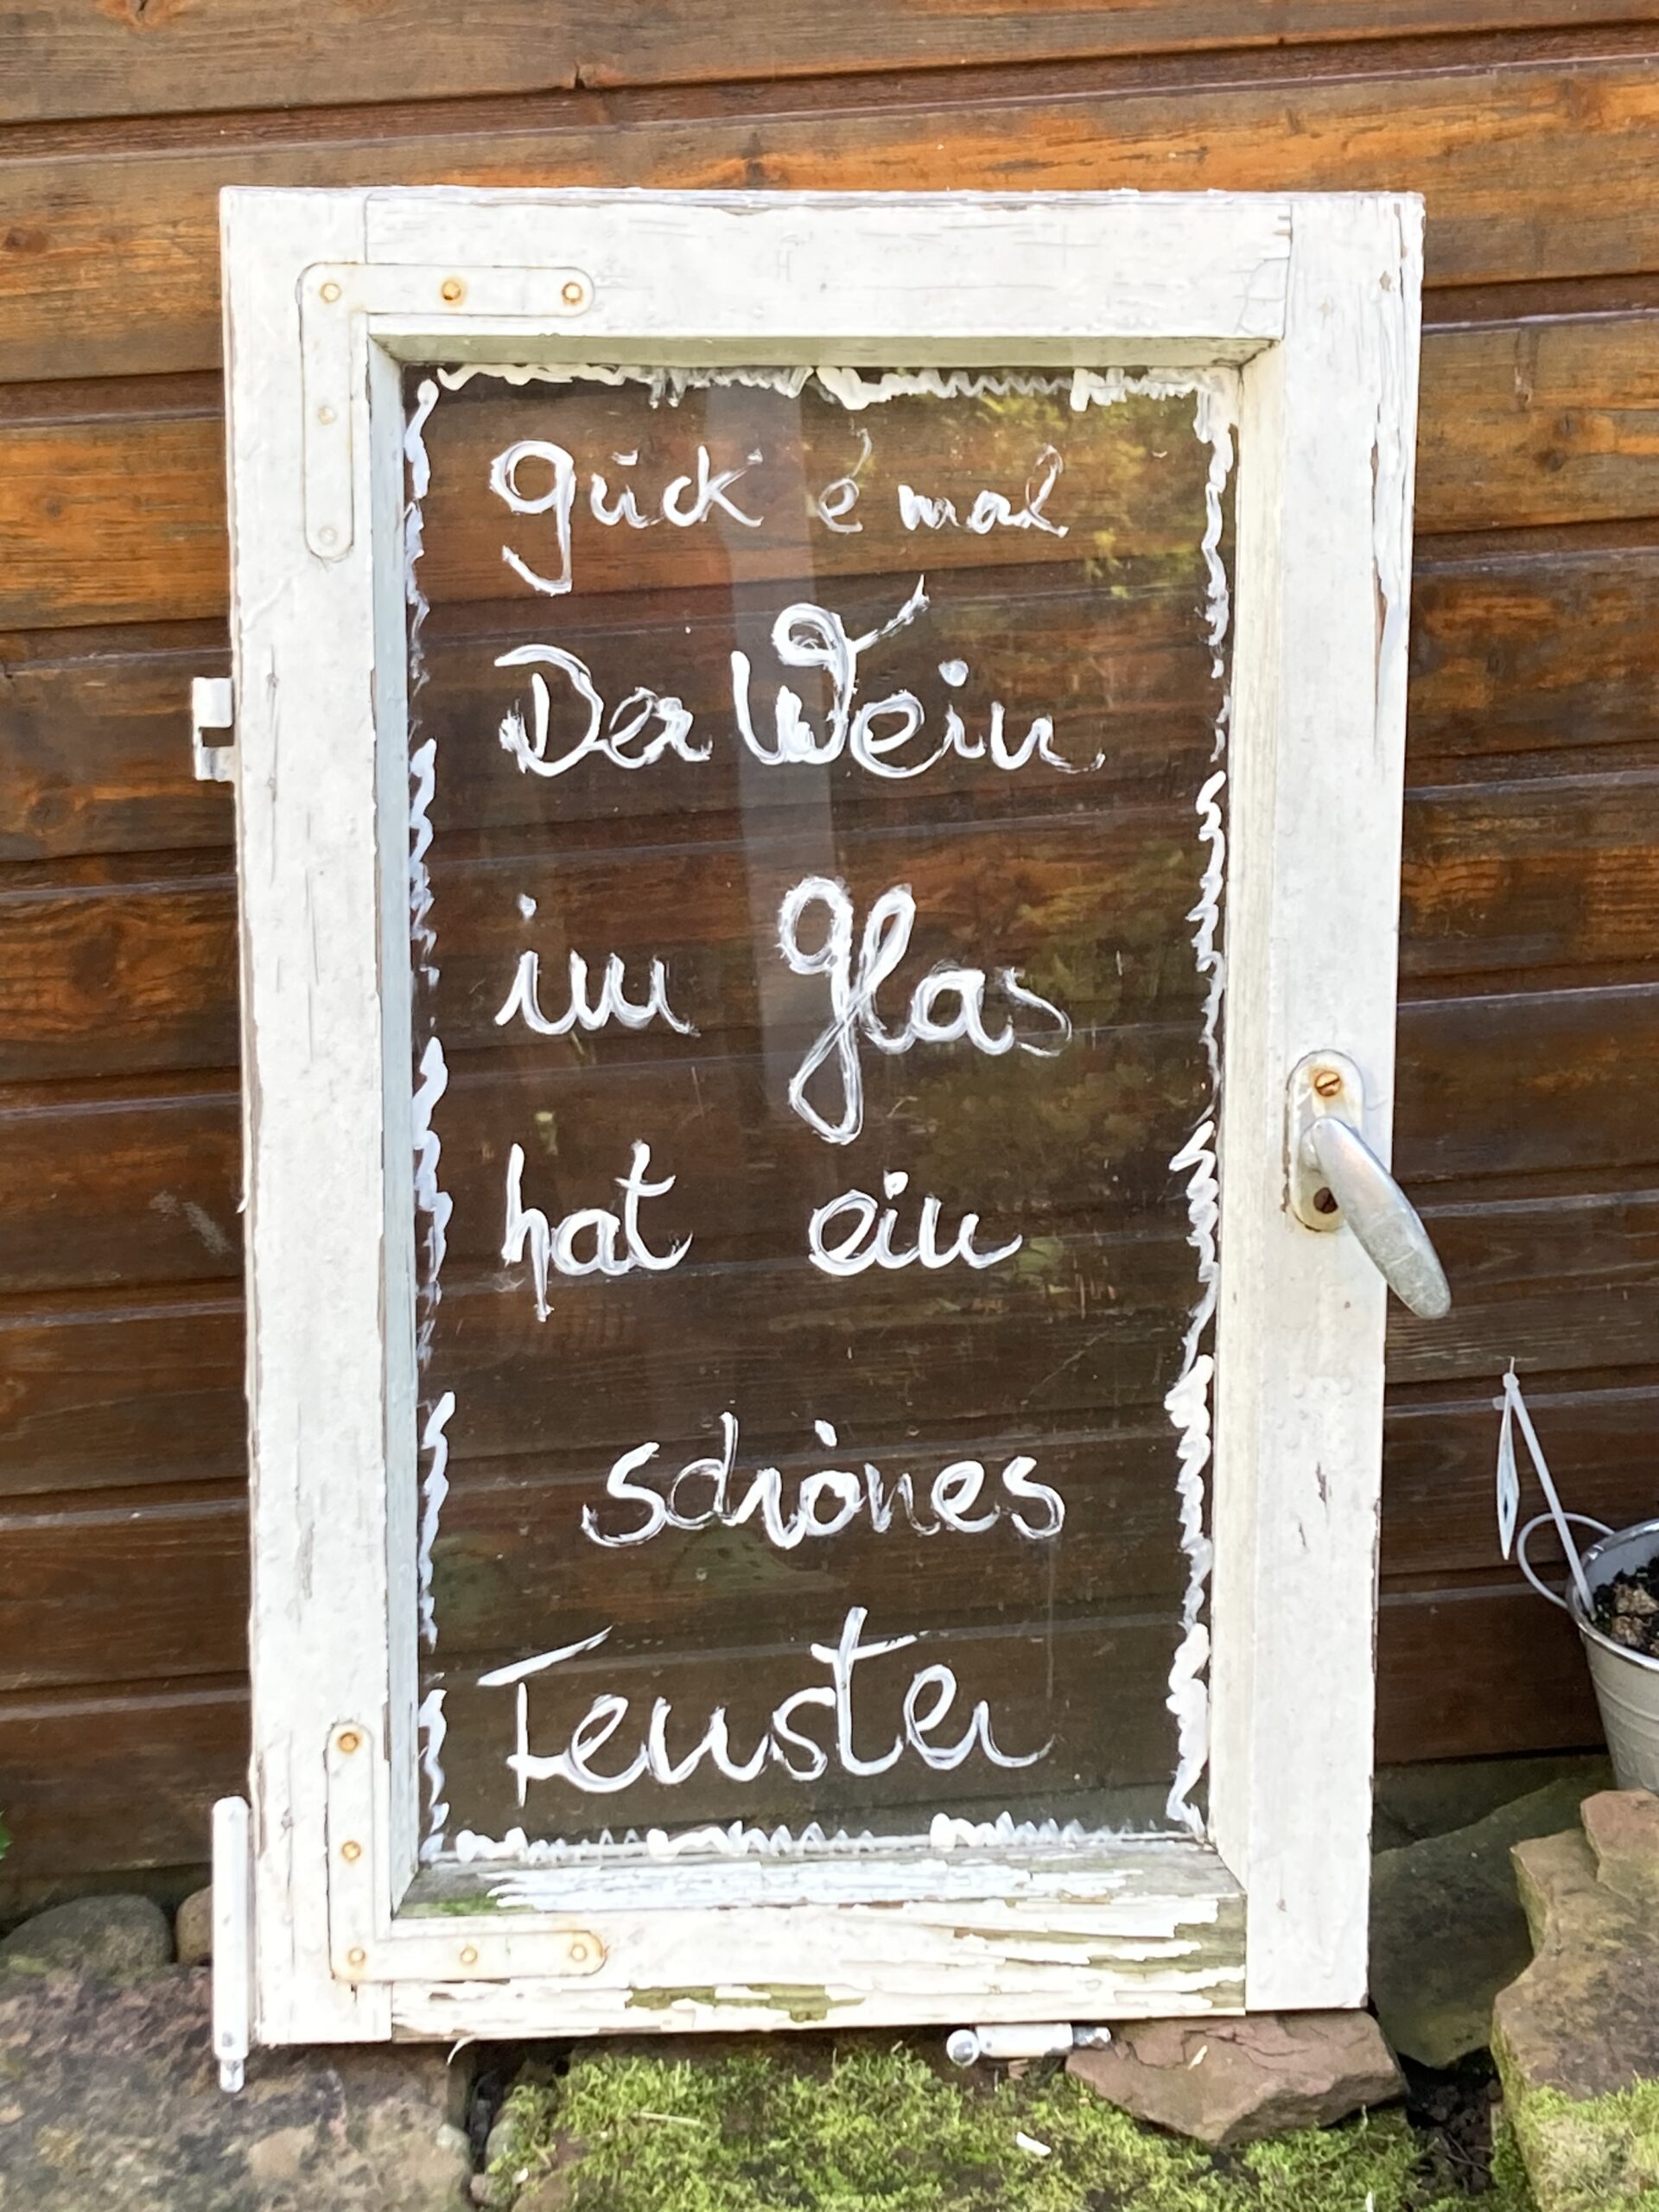 guck e mal
Der Wein
im Glas
hat ein
schönes
Fenster